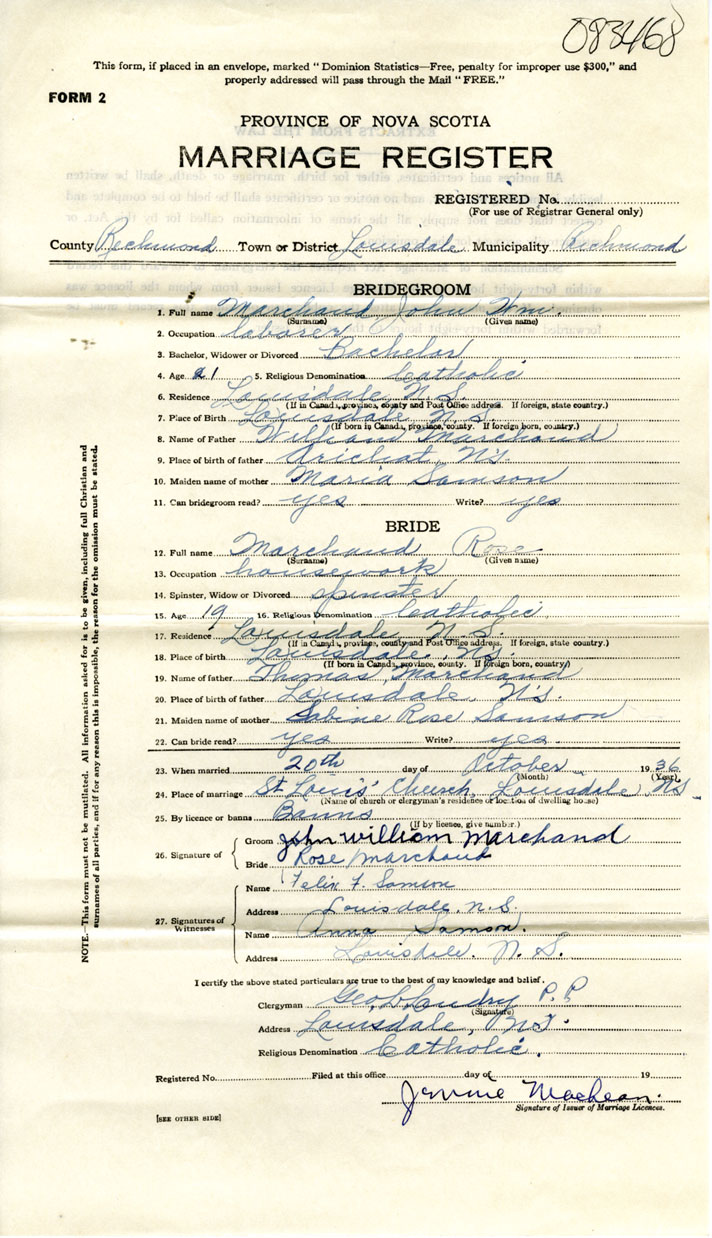 083468
This form, if placed in an envelope, marked "Dominion Statistics—Free, penalty for improper use $300," and
properly addressed will pass through the Mail "FREE."
FORM 2
PROVINCE OF NOVA SCOTIA
MARRIAGE REGISTER
REGISTERED No.
(For use of Registrar General only)
County Richmond Town or District Louisdale Municipality Richmond
BRIDEGROOM
1. Full name Marchand John Wm.
(Surname) (Given name)
2. Occupation laborer
3. Bachelor, Widower or Divorced Bachelor
4. Age 21 5. Religious Denomination Catholic
6. Residence Louisdale N.S.
(If in Canada, province, county and Post Office address. If foreign, state country.)
7. Place of Birth Louisdale N.S.
(If born in Canada, province, county. If foreign born, country.)
8. Name of Father William Marchand
9. Place of birth of father Arichat, N.S.
10. Maiden name of mother Maria Samson
11. Can bridegroom read? yes Write? yes
BRIDE
12. Full name Marchand Rose
(Surname) (Given name)
13. Occupation housework
14. Spinster, Widow or Divorced spinster
15. Age 19 16. Religious Denomination Catholic
17. Residence Louisdale N.S.
(If in Canada, province, county and Post Office address. If foreign, state country.)
18. Place of birth Louisdale N.S.
(If born in Canada, province, county. If foreign born, country)
19. Name of father Thomas Marchand
20. Place of birth of father Louisdale, N.S.
21. Maiden name of mother Sabine Rose Samson
22. Can bride read? yes Write? yes
23. When married 20th day of October 1936
(Month) (Year)
24. Place of marriage St Louis' Church, Louisdale, N.S.
(Name of church or clergyman's residence or location of dwelling house)
25. By licence or banns Banns
(If by licence, give number.)
26. Signature of
Groom John William Marchand
Bride Rose Marchand
27. Signatures of Witnesses
Name Felix F. Samson
Address Louisdale, N.S.
Name Anna Samson.
Address Louisdale. N.S.
I certify the above stated particulars are true to the best of my knowledge and belief.
Clergyman Geo. Landry P.P
(Signature)
Address Louisdale, N.S.
Religious Denomination Catholic.
Registered No. Filed at this office day of 19
Jennie MacLean.
Signature of Issuer of Marriage Licences.
[SEE OTHER SIDE]
NOTE.—This form must not be mutilated. All information asked for is to be given, including full Christian and
surnames of all parties, and if for any reason this is impossible, the reason for the omission must be stated.